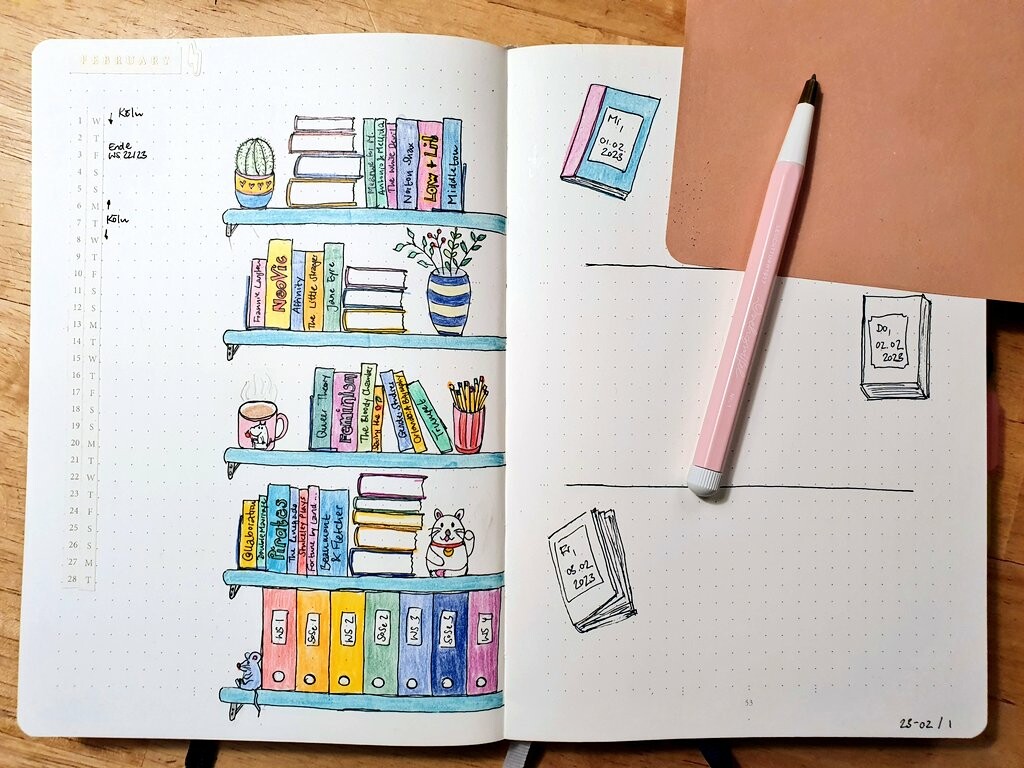 FEBRUARY
1 W
2 T
3 F
4 S
5 S
6 M
7 T
8 W
9 T
10 F
11 S
12 S
13 M
14 T
15 W
16 T
17 F
18 S
19 S
20 M
21 T
22 W
23 T
24 F
25 S
26 S
27 M
28 T
Köln
Ende
WS 22/23
Köln
Antonio & Mellida
The White Devil
Norton Shax
Low + Lib
Middletown
Frannie Langton
NeoVic
Affinity
The Little Stranger
Jane Eyre
Queer Theory
Feminism
The Bloody Chamber
Gender Studies
Trumpet
Collaboration
Pirates
The Renegado
Shirley Plays
Fortune by Land...
Beaumont
& Fletcher
WS 1
SoSe 1
WS 2
SoSe 2
WS 3
SoSe 3
WS 4
Mi,
01.02.
2023
Do,
02.02.
2023
Fr,
03.02.
2023
53
23-02 / 1